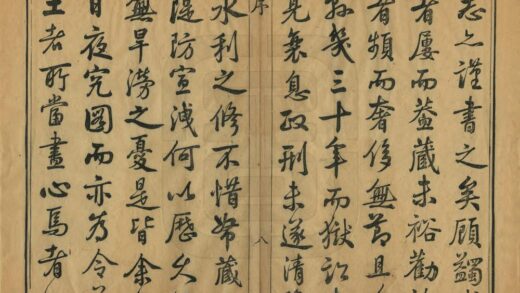 志亦謹書之矣顧蠲
者屢而蓋藏未裕勸
者頻而奢侈無節且
於茲三十年而獄訟
見衰息政刑未遂清
序
八
水利之修不惜帑藏
隄防宣洩何以歷久
無旱澇之憂是皆余
日夜究圖而亦為令
土者所當盡心焉者